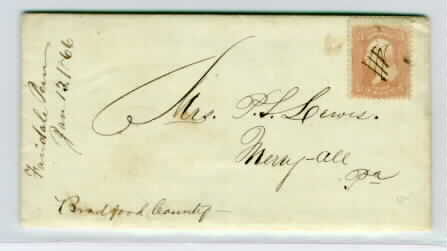 Fairdale Penn
Jan 12, 1866
Mrs. P. S. Lewis.
Merry-all
Pa
Bradford County